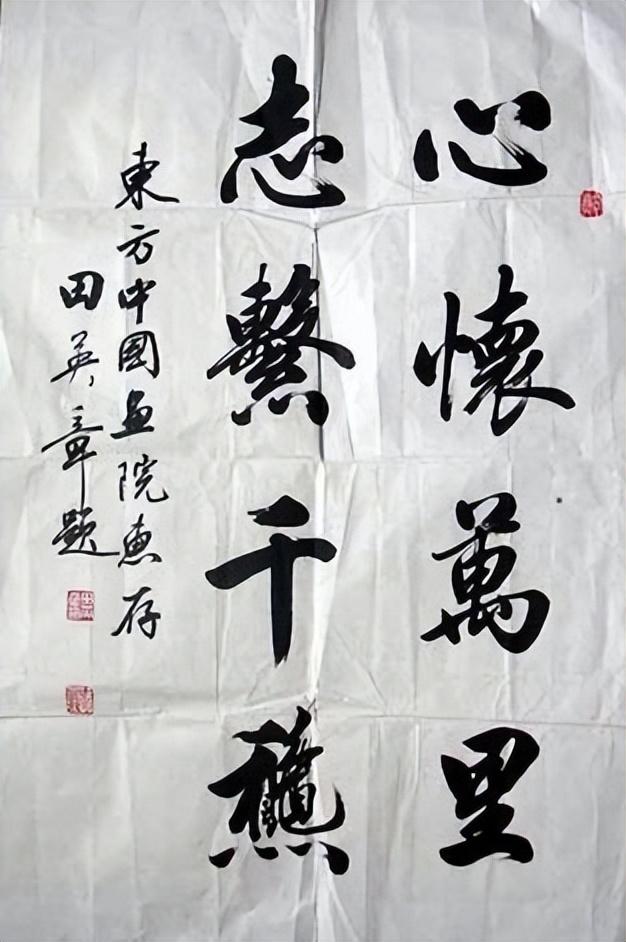 心懷萬里
志繫千龝
東方中國画院惠存
田英章題